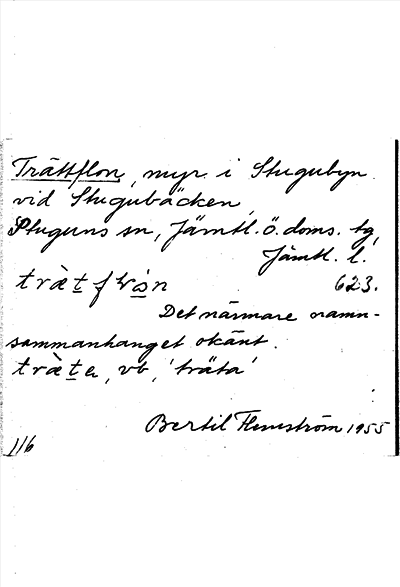 Trättflon, myr i Stugubyn
vid Stugubäcken,
Stuguns sn, Jämtl. ö. doms. tg,
Jämtl. l.
623.
Det närmare namn-
sammanhanget okänt.
vb, 'träta'
Bertil Flemström 1955
116